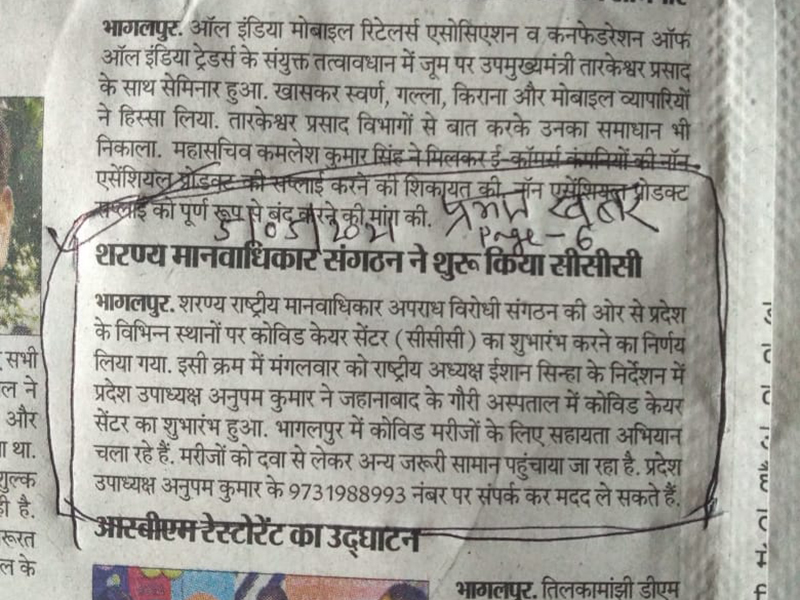 भागलपुर. ऑल इंडिया मोबाइल रिटेलर्स एसोसिएशन व कनफेडरेशन ऑफ
ऑल इंडिया ट्रेडर्स के संयुक्त तत्वावधान में जूम पर उपमुख्यमंत्री तारकेश्वर प्रसाद
के साथ सेमिनार हुआ. खासकर स्वर्ण, गल्ला, किराना और मोबाइल व्यापारियों
ने हिस्सा लिया. तारकेश्वर प्रसाद विभागों से बात करके उनका समाधान भी
निकाला. महासचिव कमलेश कुमार सिंह ने मिलकर ई-कॉमर्स कंपनियों की नॉन
एसेंशियल प्रोडक्ट की सप्लाई करने की शिकायत की. नॉन एसेंशियल प्रोडक्ट
सप्लाई को पूर्ण रूप से बंद करने की मांग की.
प्रभात खबर
5/05/2021 Page-6
शरण्य मानवाधिकार संगठन ने शुरू किया सीसीसी
भागलपुर. शरण्य राष्ट्रीय मानवाधिकार अपराध विरोधी संगठन की ओर से प्रदेश
के विभिन्न स्थानों पर कोविड केयर सेंटर (सीसीसी) का शुभारंभ करने का निर्णय
लिया गया. इसी क्रम में मंगलवार को राष्ट्रीय अध्यक्ष ईशान सिन्हा के निर्देशन में
प्रदेश उपाध्यक्ष अनुपम कुमार ने जहानाबाद के गौरी अस्पताल में कोविड केयर
सेंटर का शुभारंभ हुआ. भागलपुर में कोविड मरीजों के लिए सहायता अभियान
चला रहे हैं. मरीजों को दवा से लेकर अन्य जरूरी सामान पहुंचाया जा रहा है. प्रदेश
उपाध्यक्ष अनुपम कुमार के 9731988993 नंबर पर संपर्क कर मदद ले सकते हैं.
आरबीएम रेस्टोरेंट का उद्घाटन
भागलपुर. तिलकामांझी डीएम
सभी
ल ने
और
ा था.
शुल्क
ही है.
रूरत
ल के